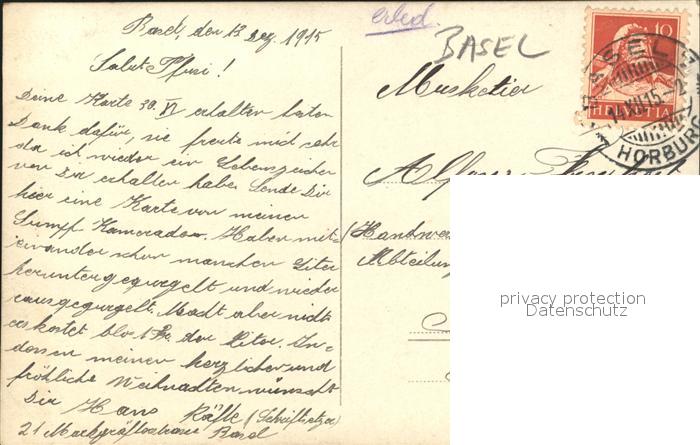 Basel, den 13 Dez. 1915
erled.
BASEL
Salut Pfusi!
Deine Karte 30. VI erhalten besten
Dank dafür, sie freute mich sehr
da ich wieder ein Lebenszeichen
von Dir erhalten habe. Sende Dir
hier eine Karte von meinen
Sumpf Kameraden. Haben mit-
einander schon manchen Liter
heruntergegurgelt und wieder
rausgegurgelt. Macht aber nicht
es kostet blos 1 Fr. der Liter. In-
dessen meinen herzlichen und
fröhliche Weihnachten wünscht
Dir Hans Räfle (Schriftsetzer)
21 Markgräflerstrasse Basel
Musketier
Alfons
(Handwer
Abteilung
10
HELVETIA
BASEL
14.XII.15
HORBURG
privacy protection
Datenschutz